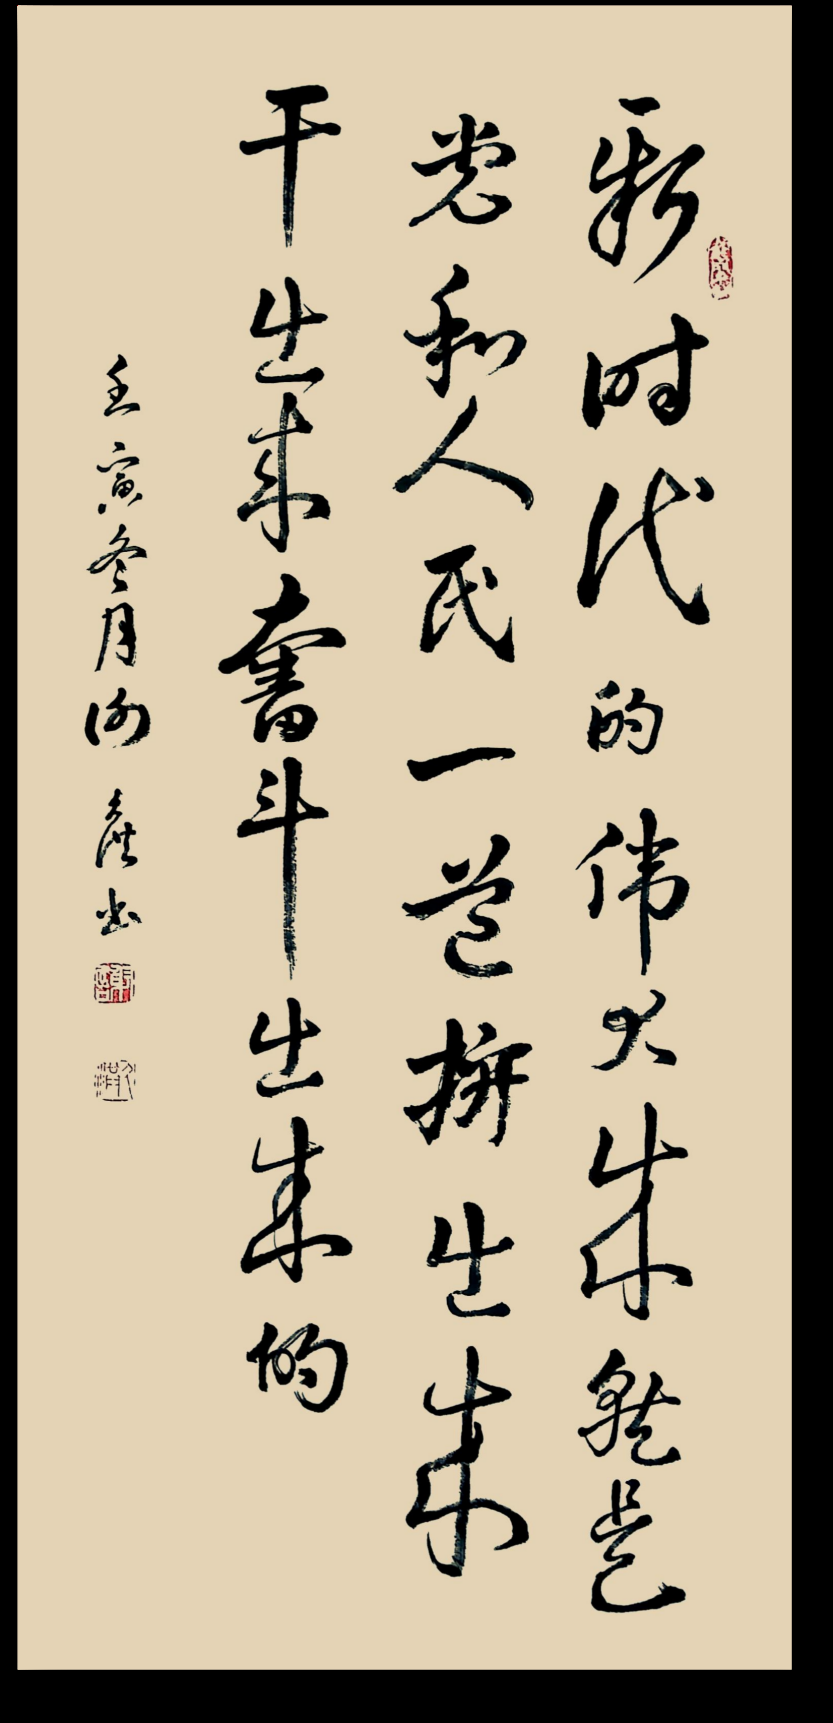 新时代的伟大成就是
党和人民一道拼出来
干出来奮斗出来的
壬寅冬月 书